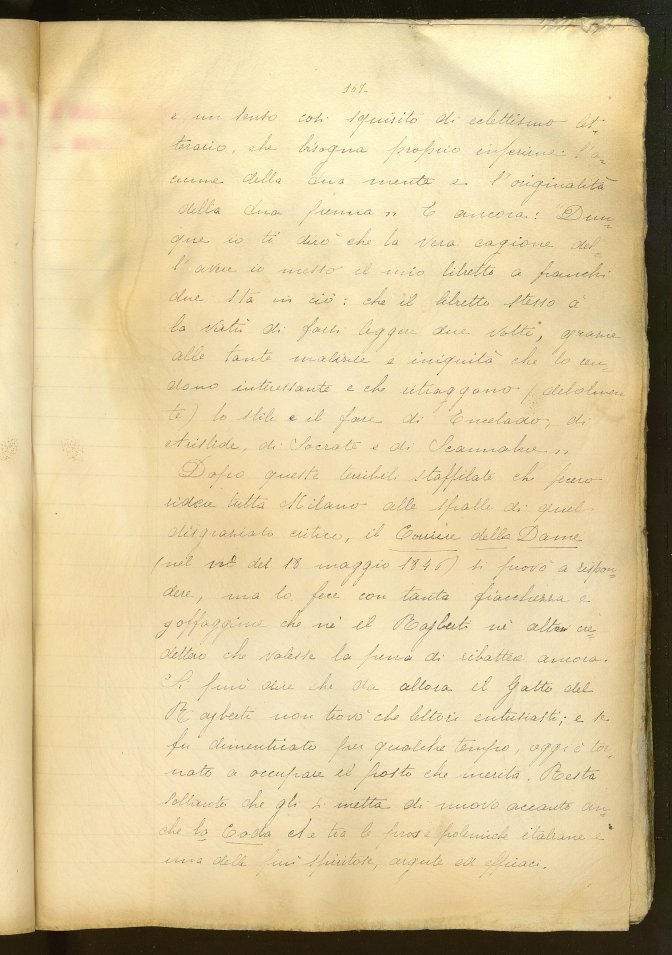 167-
e un senso così squisito di eclettismo let-
terario, che bisogna proprio inferirne l'a-
cume della sua mente e l'originalità
della sua penna " E ancora: Dun-
que io ti dirò che la vera cagione del-
l'aver io messo il mio libretto a franchi
due sta in ciò: che il libretto stesso à
la virtù di farsi leggere due volte, grazie
alle tante malizie e iniquità che lo ren-
dono interessante e che ritraggono (debolmen-
te) lo stile e il fare di Encelado, di
Aristide, di Socrate e di "
Dopo queste terribili staffilate che fecero
ridere tutta Milano alle spalle di quel
disgraziato critico, il Corriere delle Dame
(nel nº del 18 maggio 1846) si provò a rispon-
dere, ma lo fece con tanta fiacchezza e
goffaggine che nè il Rajberti nè altri cre-
dettero che valesse la pena di ribattere ancora.
Si può dire che da allora il Gatto del
Rajberti non trovò che lettori entusiasti; e se
fu dimenticato per qualche tempo, oggi è tor-
nato a occupare il posto che merita. Resta
soltanto che gli si metta di nuovo accanto an-
che la Coda che tra le prose polemiche italiane è
una delle più spiritose, argute ed efficaci.